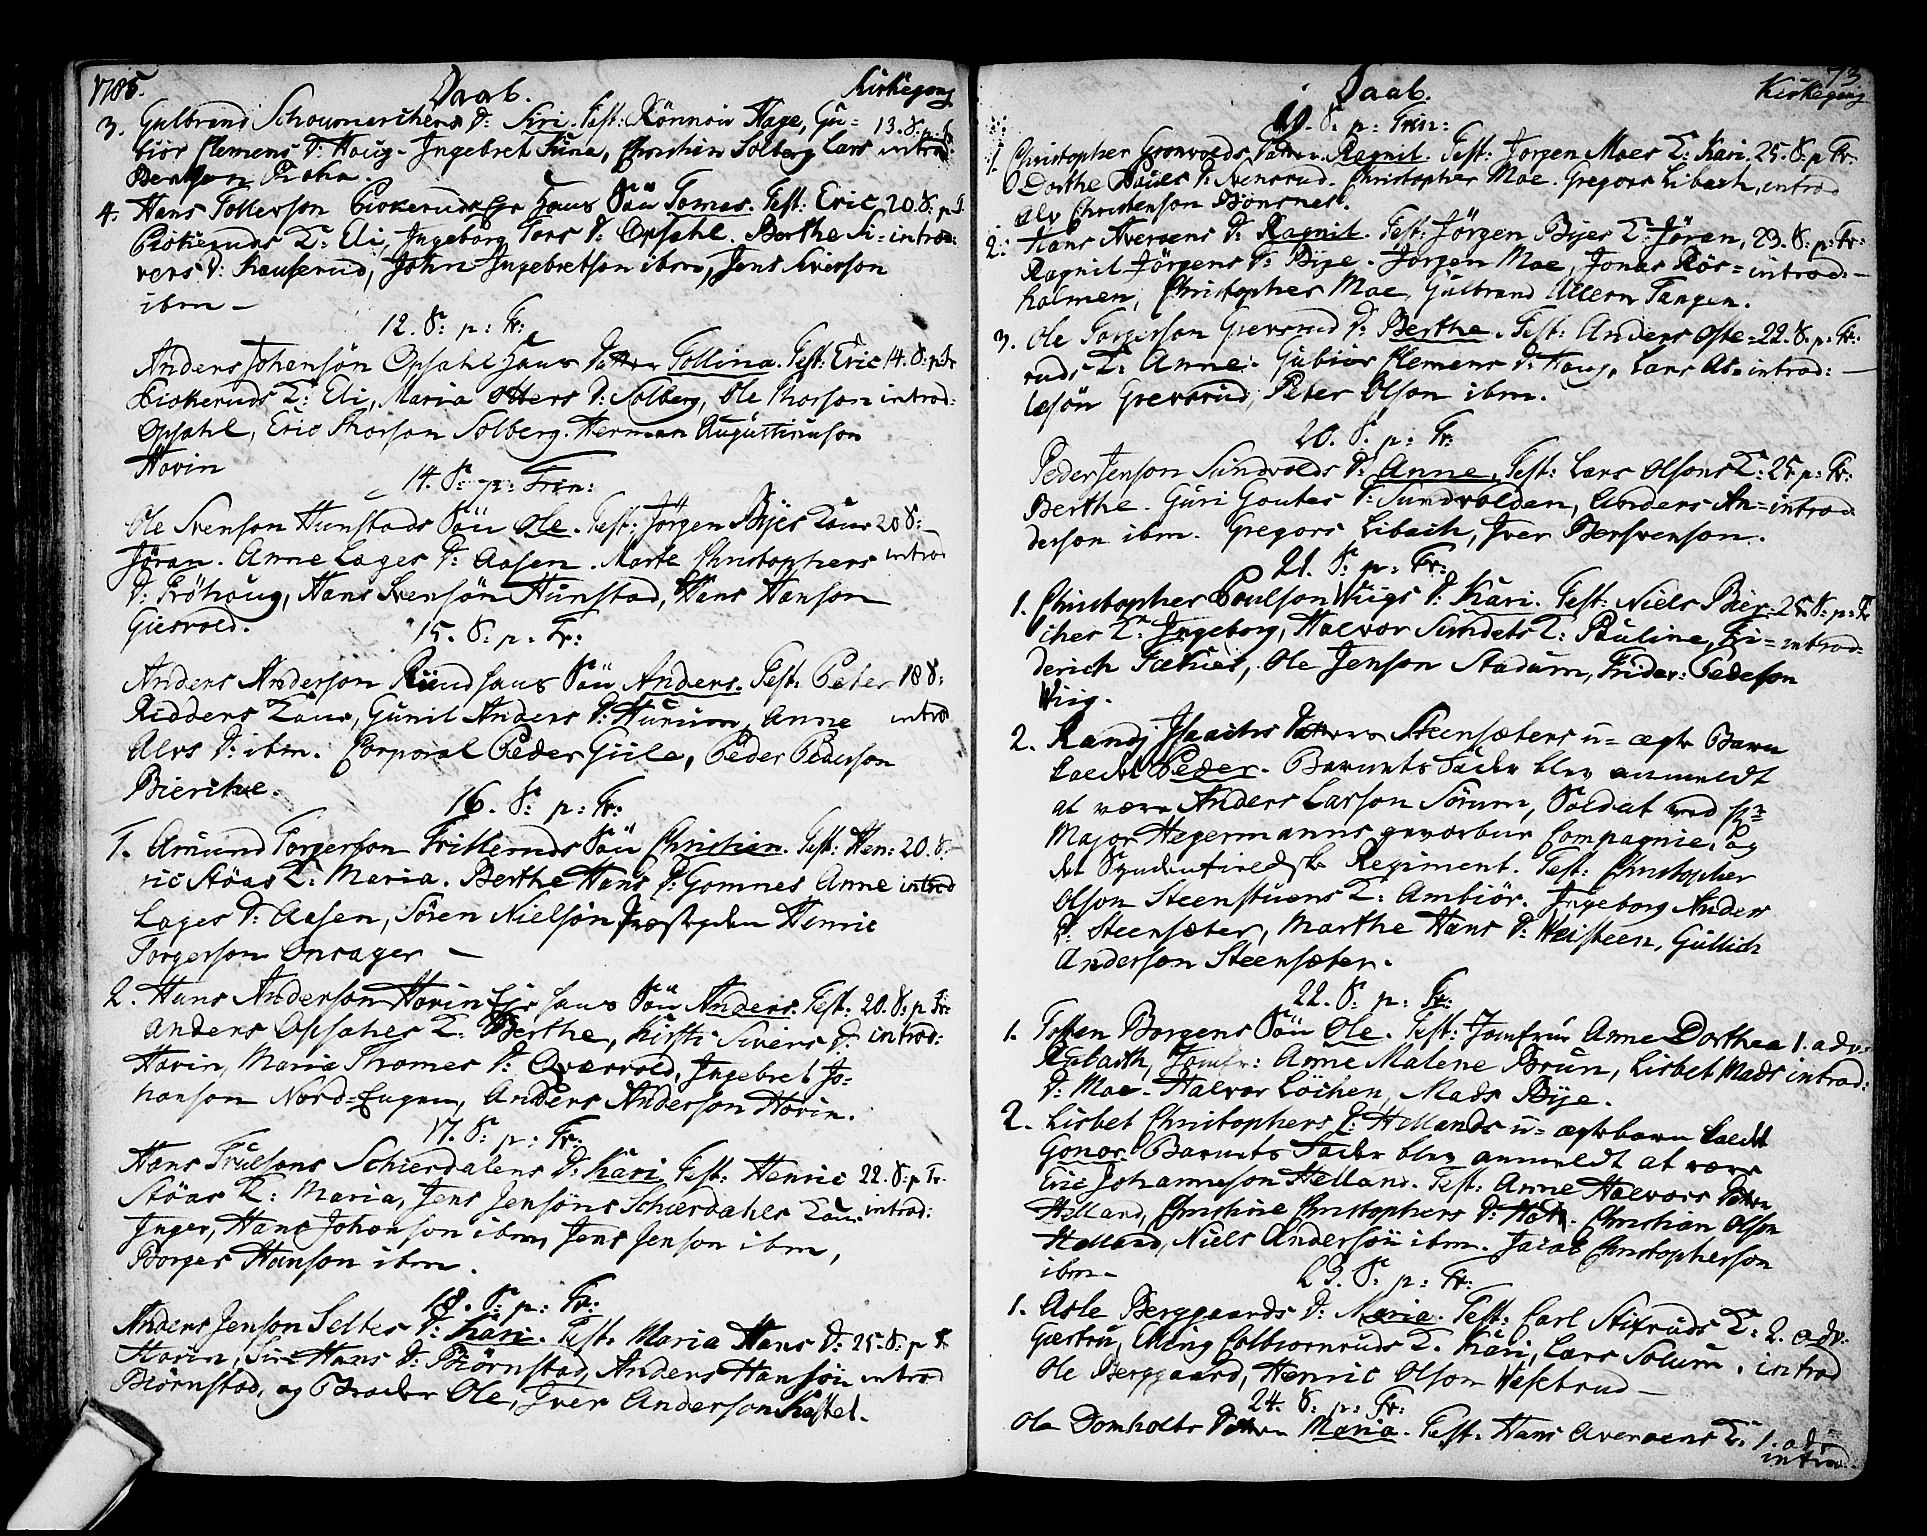 1785.
Daab.
Kirkegang
3. Gulbrand Schoumarchens D: Siri. Test: Rönnow Hage, Gu= 13. S. p. Tr.
biör Clemens D: Haug. Ingebret Tune, Christian Solberg Lars introd
Bentson
4. Hans Tollerson Hans Sön Tomas. Test: Eric 20. S. p T.
T: Eli, Ingeborg Tors D: Opsahl. Berthe Si= introd:
vers D: John Ingebretson ibm, Jens Siverson
ibm —
12. S: p: Tr:
Anders Johansön Opsahl hans Datter Tollina. Test: Eric 14. S. p Tr
T: Eli, Maria Otters D: Solberg, Ole Thorson introd:
Opsahl, Eric Thorson Solberg. Herman Augustinuson
Hovin
14. S: p: Trin:
Ole Svenson Hunstads Sön Ole. Test: Jörgen Byes 20 S:
Jöran. Anne Lages D: Aasen. Marte Christophers introd
D: Pröhoug, Hans Svensön Hunstad, Hans Hanson
Giesvold.
15. S. p. Tr:
Anders Anderson hans Sön Anders. Test: Peter 18 S:
Ridders Kone, Gunil Anders D: Hurum, Anne introd
Alvs D: ibm. Corporal Peder Giile, Peder Pederson
Bierche.
16. S. p: Tr:
1. Amund Torgerson Sön Christian. Test: Hen= 20. S.
ric Stöas K: Maria. Berthe Hans D: Gomnes Anne introd
Lages D: Aasen, Sören Nielsön Henric
Torgerson Onsager —
2. Hans Anderson Hovin Eje hans Sön Anders. Test: 20. S. p Tr:
Anders Opsahls K: Berthe, Kirsti Sivers D: introd:
Hovin, Maria Thomes D: Ingebret Jo=
hanson Nord=Eugen, Anders Anderson Hovin.
17. S: p: Tr:
Hans Trulsons Schierdalens D: Kari Test: Henric 22. S. p Tr.
Stöas K: Maria, Jens Jensöns Schierdahls Kone introd:
Inger, Hans Johanson ibm, Jens Jenson ibm,
Borger Hanson ibm.
18. S: p: Tr:
Anders Jenson Seltes D: Kari. Test: Maria Hans D: 25. S. p Tr
Hovin, Siri Hans D: Biörnstad, Anders Hansön introd
Biörnstad, og Broder Ole, Iver Anderson
73
Daab.
Kirkegang
19. S: p: Trin:
1. Christopher Gronvolds Datter Ragnil. Test: Jorgen Moes K: Kari. 25. S: p Tr.
Dorthe D: Svensrud. Christopher Moe. Gregors Libach, introd
Alv Christenson Bjönsnes.
2. Hans Averoens D: Ragnil. Test: Jörgen Byes K: Jöran, 23. S. p: Tr:
Ragnil Jörgens D: Bye. Jorgen Moe, Jonas Rös= introd: —
holmen, Christopher Moe, Gulbrand Ullern Tangen.
3. Ole Torgerson Grevsrud D: Berthe. Test: Anders Ofte= 22. S. p. Tr:
ruds K: Anne. Gubior Clemens D: Haug, Lars At= introd: —
lesön Grevsrud, Peter Olson ibm.
20. S. p: Tr:
Peder Jenson Sundvolds D: Anne. Test: Lars Olsons K: 25. p: Tr:
Berthe. Guri Goutes D: Sundvolden, Anders An= introd
derson ibm. Gregors Libach, Iver Bersvenson.
21. S. p: Tr:
1. Christopher Poulson Wiigs D: Kari. Test: Niels Bier= 25. S. p: Tr
ches K: Ingeborg, Halvor Sundets K: Pauline, Fri= introd:
derich Ole Jenson Stadum, Frider: Pedeson
Wiig.
2. Randj Isaachs Datter Steensæters u=ægte Barn
kaldet Peder. Barnets Fader blev anmeldt
at være Anders Larson Sörum, Soldat ved Hr
Major Hegermanns gevorbne Compagnie, og
det Syndenfieldske Regiment. Test: Christopher
Olson Steenstuens K: Ambiör. Ingeborg Anders
D: Steensæter, Marthe Hans D: Weisteen, Gullich
Anderson Steensæter.
22. S: p: Tr:
1. Tosten Borgens Sön Ole. Test: Jomfru Anne Dorthea 1. adv.
Rabach, Jomfr: Anne Malene Brun, Lisbet Mads introd:
D: Moe. Halvor Löchen, Mads Bye.
2. Lisbet Christophers D: Hellands u=ægte barn kaldet
Gonor. Barnets Fader blev anmeldt at være
Eric Johanneson Helland. Test: Anne Halvors Datter
Helland, Christine Christophers D: Christian Olson
Helland, Niels Andersön ibm. Jacob Christopherson
ibm —
23. S: p: Tr:
1. Asle Berggaards D: Maria. Test: Carl Stixruds K: 2. adv:
Gurtru, Elling Colbiornruds K. Kari, Lars Solum. introd
Ole Berggaard, Henric Olson Vesetrud —
24. S. p: Tr:
Ole Domholts Datter Maria. Test: Hans Averoens K: 1. adv
introd.